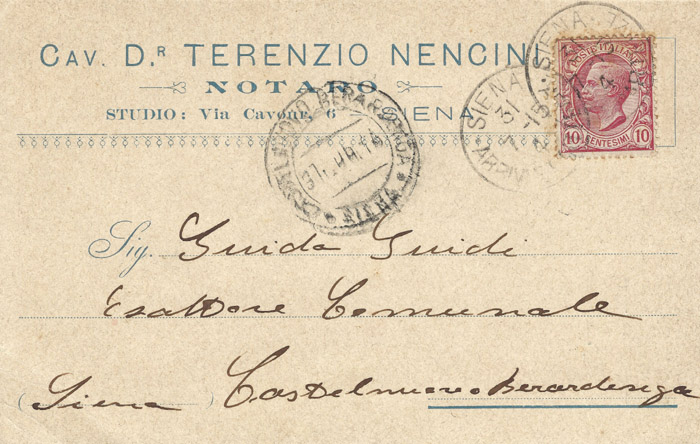 CAV. D.R TERENZIO NENCINI
NOTARO
STUDIO: Via Cavour, 6 SIENA
POSTE ITALIANE
10 CENTESIMI 10
SIENA
CASTELNUOVO BERARDENGA
SIENA
Sig. Guido Guidi
Esattore Comunale
(Siena) Castelnuovo Berardenga